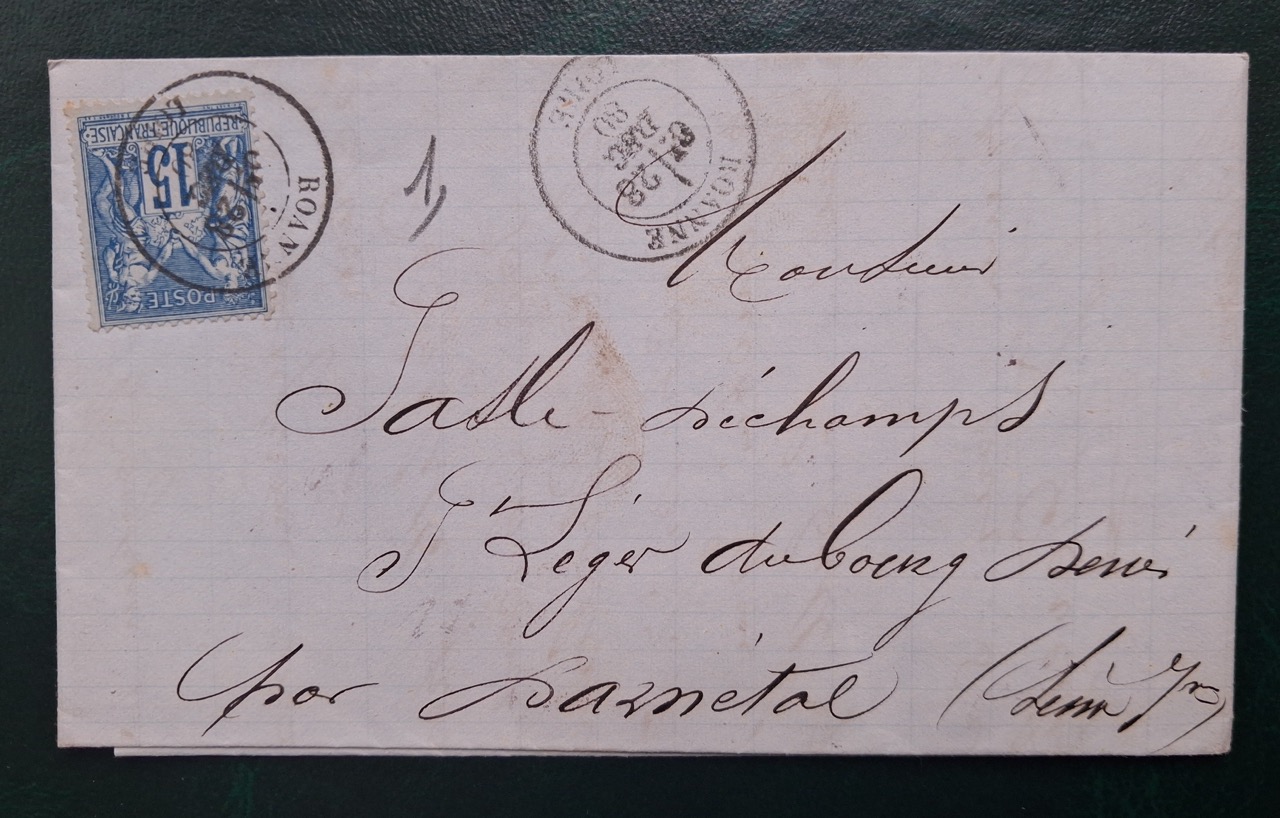 RÉPUBLIQUE FRANÇAISE
15
POSTE
ROANNE
LOIRE
ROANNE
28
DEC
80
LOIRE
1
Monsieur
Déchamps
St Léger du bourg Denis
par Darnétal (Seine Inre)